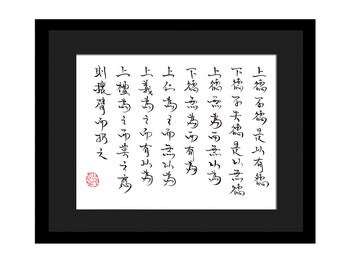 上德不德是以有德
下德不失德是以無德
上德無為而無以為
下德無為而有為
上仁為之而無以為
上義為之而有以為
上禮為之而莫之應
則攘臂而扔之